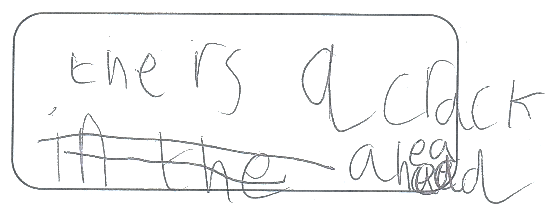 the is a crack
in the ahead